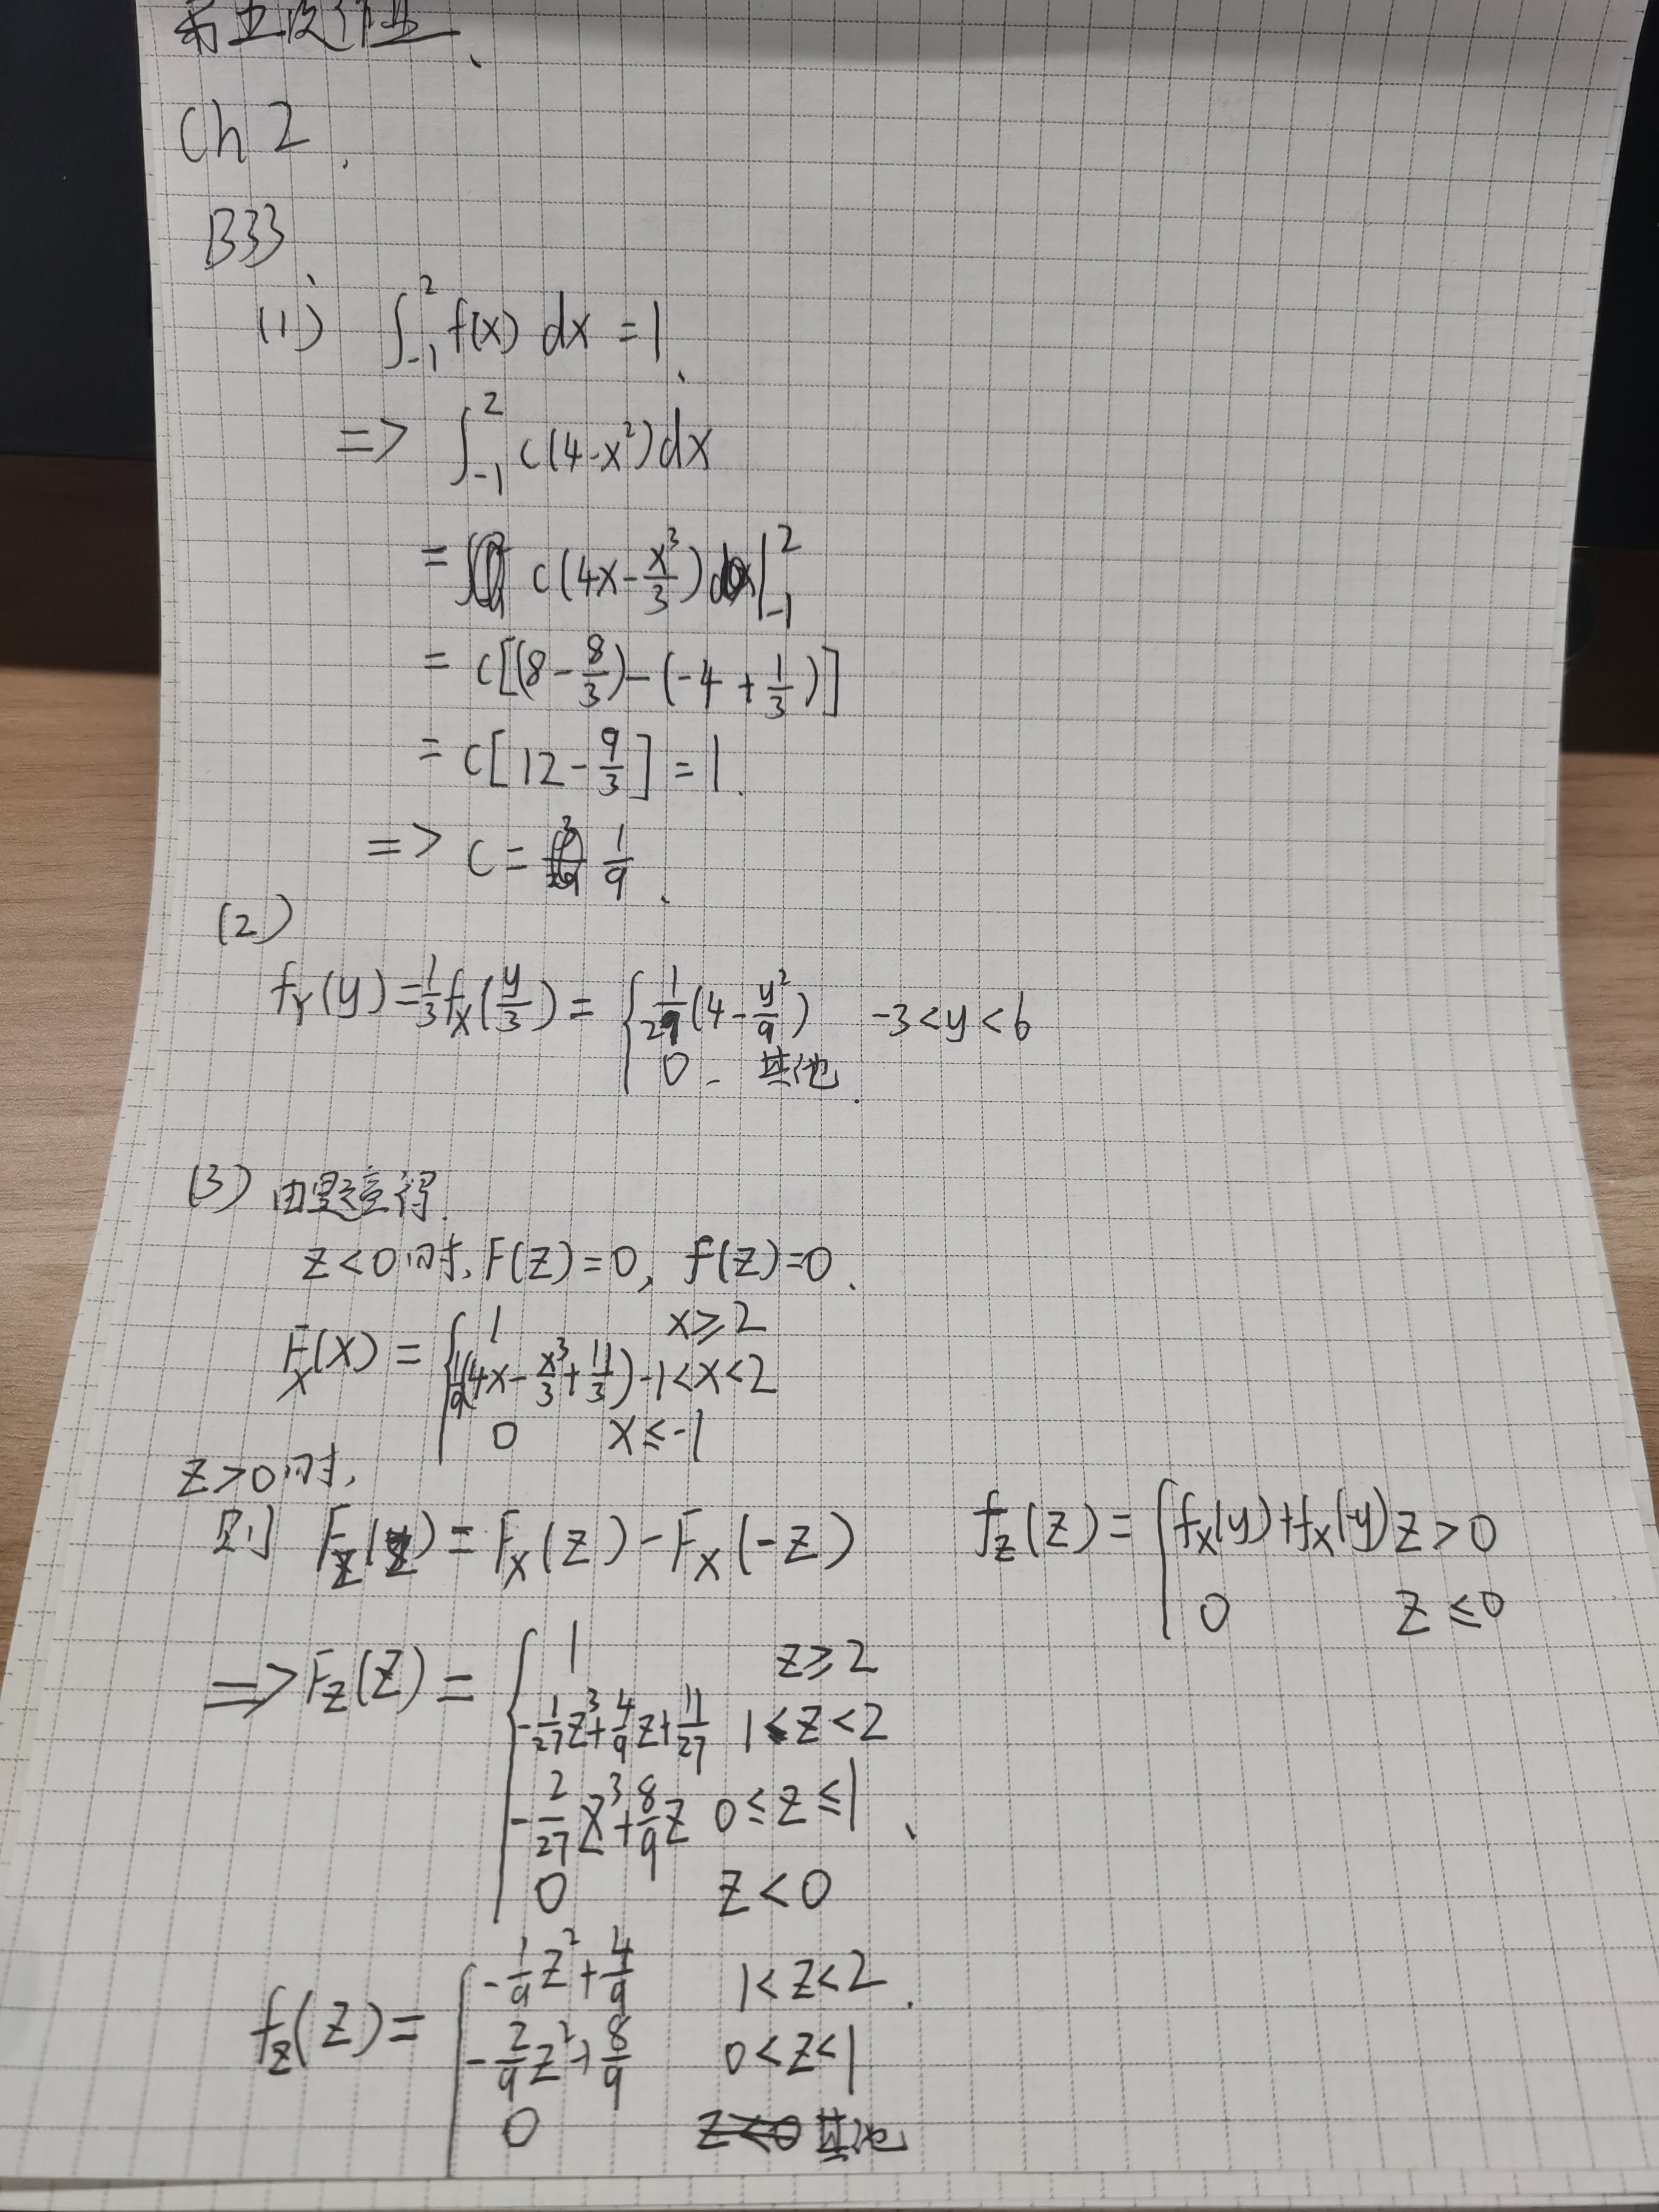 第五次作业
Ch 2.
B33.
(1) ∫_{-1}^{2} f(x) dx = 1.
=> ∫_{-1}^{2} c(4-x²)dx
= c(4x-x³/3)|_{-1}^{2}
= c[(8-8/3)-(-4+1/3)]
= c[12-9/3] = 1.
=> c = 1/9.
(2)
f_Y(y) = 1/3 f_X(y/3) = { 1/27(4-y²/9) -3<y<6
0. 其他.
(3) 由题意得.
z<0时, F(z)=0, f(z)=0.
F_X(x) = { 1 x≥2
1/9(4x-x³/3+11/3) -1<x<2
0 x≤-1
z>0时,
则 F_Z(z) = F_X(z) - F_X(-z) f_Z(z) = { f_X(y)+f_X(-y) z>0
0 z≤0
=> F_Z(z) = { 1 z≥2
-1/27 z³+4/9 z+11/27 1<z<2
-2/27 z³+8/9 z 0≤z≤1.
0 z<0
f_Z(z) = { -1/9 z²+4/9 1<z<2.
-2/9 z²+8/9 0<z<1
0 其他